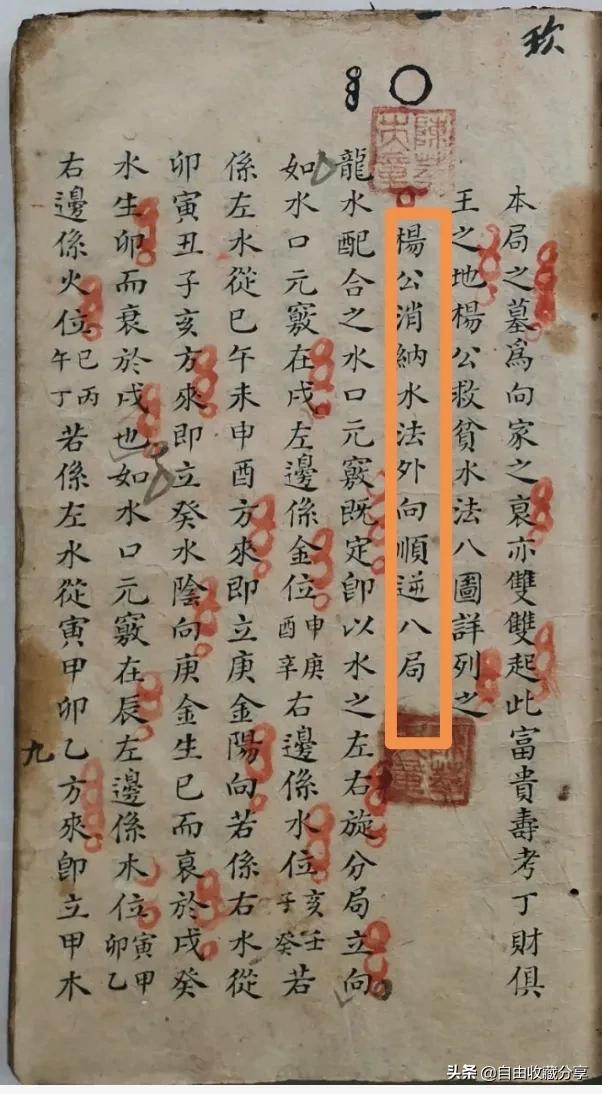 玖
本局之墓爲向家之衰亦雙雙起此富貴壽考丁財俱
王之地楊公救貧水法八圖詳列之
楊公消納水法外向順逆八局
龍水配合之水口元竅既定卽以水之左右旋分局立向
如水口元竅在戌左邊係金位申庚酉辛右邊係水位亥壬子癸若
係左水從巳午未申酉方來卽立庚金陽向若係右水從
卯寅丑子亥方來卽立癸水陰向庚金生巳而衰於戌癸
水生卯而衰於戌也如水口元竅在辰左邊係木位寅甲卯乙
右邊係火位巳丙午丁若係左水從寅甲卯乙方來卽立甲木
九
头条 @自由收藏分享